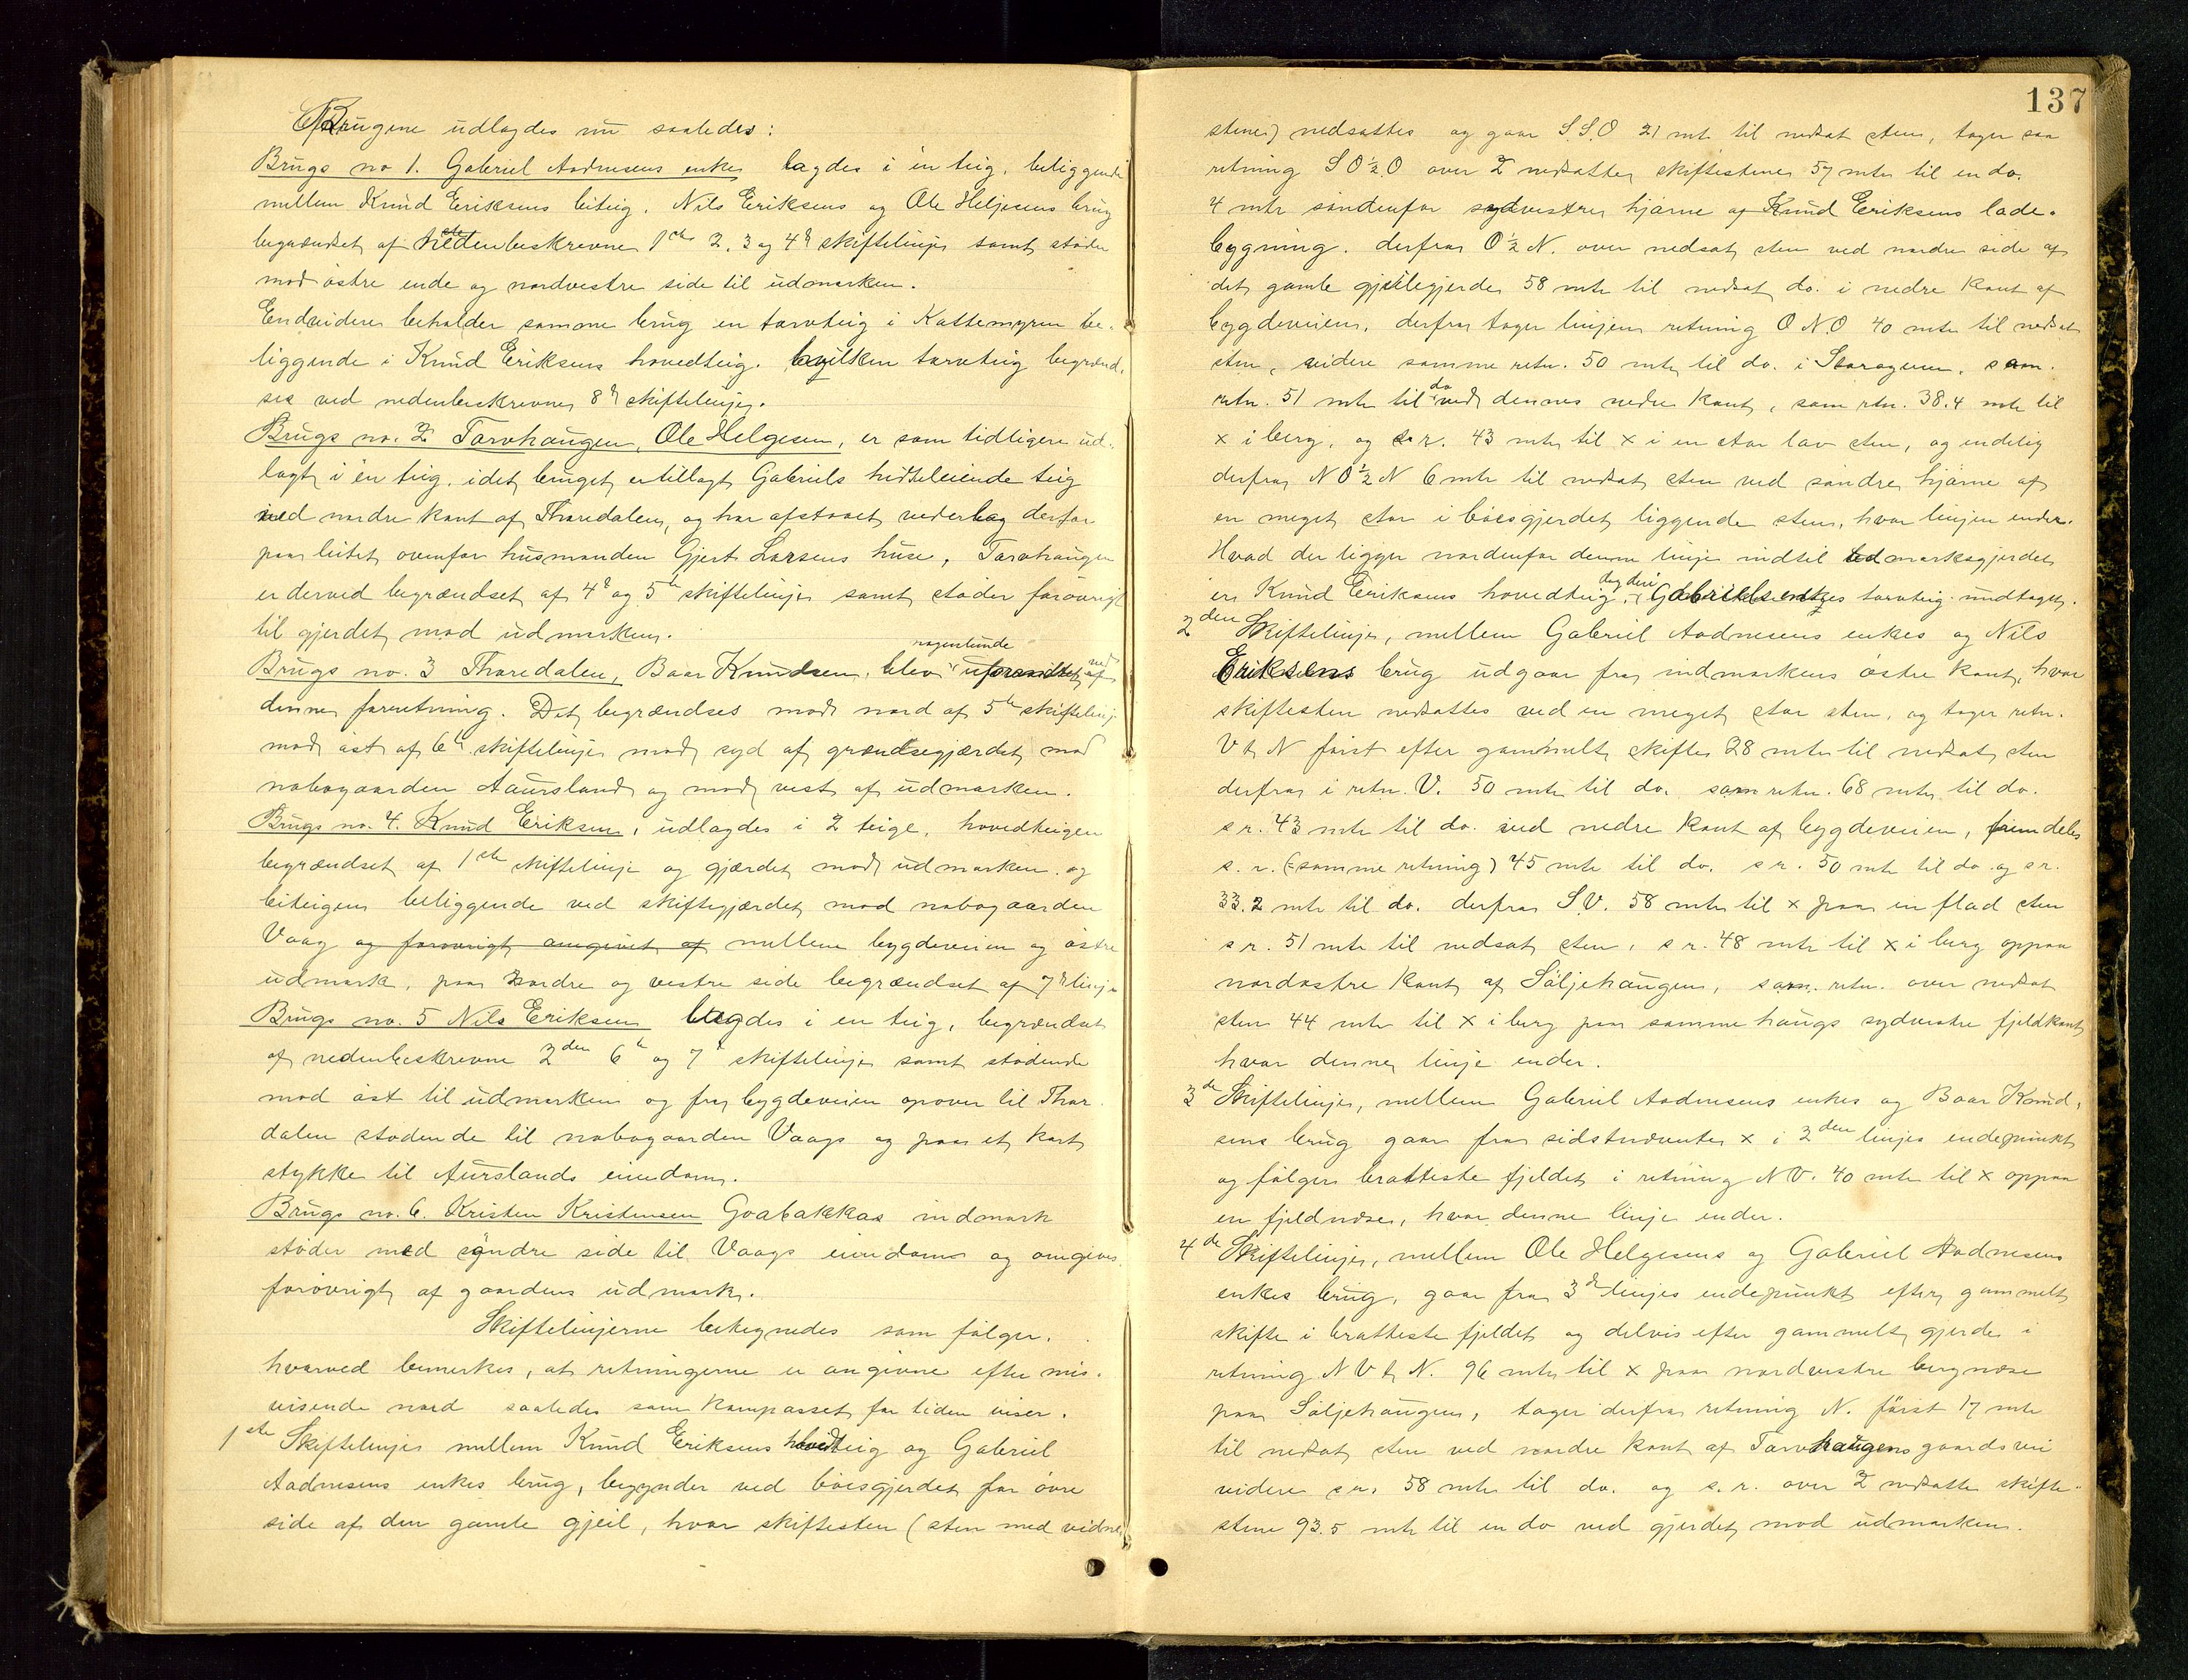 Brugene udlagdes nu saaledes:
Brugs no 1. Gabriel Aadnesens enkes lagdes i én teig, beliggende
mellem Knud Eriksens biteig, Nils Eriksens og Ole Heljesens brug
begrændset af nedenbeskrevne 1ste 2. 3 og 4de skiftelinjer samt støder
mod østre ende og nordvestre side til udmarken.
Endvidere beholder samme brug en torvteig i Kattemyren be-
liggende i Knud Eriksens hovedteig, hvilken torvteig begrænd-
ses ved nedenbeskrevne 8de skiftelinje.
Brugs no. 2 Torvhaugen, Ole Helgesen, er som tidligere ud-
lagt i én teig, idet bruget er tillagt Gabriels hidtilværende teig
ved nordre kant af Thoredalen, og har afstaaet vederlag derfor
paa leitet ovenfor husmanden Gjert Larsens huse. Torvhaugen
er derved begrændset af 4de og 5te skiftelinje samt støder forøvrigt
til gjerdet mod udmarken.
nogenlunde
Brugs no. 3 Thoredalen, Baar Knudsen, blev uforandret ved
denne forretning. Det begrændses mod nord af 5te skiftelinje
mod øst af 6te skiftelinje mod syd af grændsegjærdet mod
nabogaarden Aaursland og mod vest af udmarken.
Brugs no. 4. Knud Eriksen, udlagdes i 2 teige, hovedteigen
begrændset af 1ste skiftelinje og gjærdet mod udmarken og
biteigen beliggende ved skiftegjærdet mod nabogaarden
Vaag og forøvrigt omgivet af mellem bygdeveien og østre
udmark, paa nordre og vestre side begrændset af 7de linje
Brugs no. 5 Nils Eriksen lagdes i en teig, begrændset
af nedenbeskrevne 2den 6te og 7de skiftelinje samt stødende
mod øst til udmarken og fra bygdeveien opover til Thor-
dalen stødende til nabogaarden Vaags og paa et kort
stykke til Aurslands eiendom.
Brugs no. 6. Kristen Kristensen Goabakkas indmark
støder med søndre side til Vaags eiendom og omgives
forøvrigt af gaardens udmark.
Skiftelinjerne betegnedes som følger,
hvorved bemerkes, at retningerne er angivne efter mis-
visende nord saaledes som kompasset for tiden viser.
1ste Skiftelinje mellem Knud Eriksens hovedteig og Gabriel
Aadnesens enkes brug, begynder ved bøesgjerdet for øvre
side af den gamle gjeil, hvor skiftesten (sten med vidne-
137
stene) nedsattes og gaar S.S.O 21 mtr til nedsat sten, tager saa
retning S O ½ O over 2 nedsatte skiftestene 57 mtr til en do.
4 mtr søndenfor sydvestre hjørne af Knud Eriksens lade-
bygning. derfra O ½ N. over nedsat sten ved nordre side af
det gamle gjeilegjerde 58 mtr til nedsat do. i nedre kant af
bygdeveien, derfra tager linjen retning O N.O 40 mtr til nedsat
sten, videre samme retn. 50 mtr til do. i Storageren, sam.
retn. 51 mtr til do ved dennes nedre kant, sam retn. 38.4 mtr til
x i berg, og s. r. 43 mtr til x i en stor lav sten, og endelig
derfra N O ½ N 6 mtr til nedsat sten ved søndre hjørne af
en meget stor i bøesgjerdet liggende sten, hvor linjen ender.
Hvad der ligger nordenfor denne linje indtil udmarksgjerdet
er Knud Eriksens hovedteig, dog deri Gabriels enkes torvteig undtaget.
2den Skiftelinje, mellem Gabriel Aadnesens enkes og Nils
Eriksens brug udgaar fra indmarkens østre kant, hvor
skiftesten nedsattes ved en meget stor sten, og tager retn.
V t N først efter gammelt skifte 28 mtr til nedsat sten
derfra i retn. V. 50 mtr til do. sam retn. 68 mtr til do.
s r. 43 mtr til do. ved nedre kant af bygdeveien, fremdeles
s. r. (=samme retning) 45 mtr til do. s r. 50 mtr til do og s r.
33.2 mtr til do. derfra S.V. 58 mtr til x paa en flad sten
s r. 51 mtr til nedsat sten, s r. 48 mtr til x i berg oppaa
nordøstre kant af Søljehaugen, sam. retn. over nedsat
sten 44 mtr til x i berg paa samme haugs sydvestre fjeldkant
hvor denne linje ender.
3de Skiftelinje, mellem Gabriel Aadnesens enkes og Baar Knud-
sens brug gaar fra sidstnævnte x i 2den linjes endepunkt
og følger bratteste fjeldet i retning N V. 40 mtr til x oppaa
en fjeldnæse, hvor denne linje ender.
4de Skiftelinje, mellem Ole Helgesens og Gabriel Aadnesens
enkes brug, gaar fra 3de linjes endepunkt efter gammelt
skifte i bratteste fjeldet og delvis efter gammelt gjerde i
retning N V t N. 96 mtr til x paa nordvestre bergnæse
paa Søljehaugen, tager derfra retning N. først 17 mtr
til nedsat sten ved nordre kant af Torvhaugens gaardsvei
videre s r. 58 mtr til do. og s. r. over 2 nedsatte skifte-
stene 93.5 mtr til en do ved gjerdet mod udmarken.